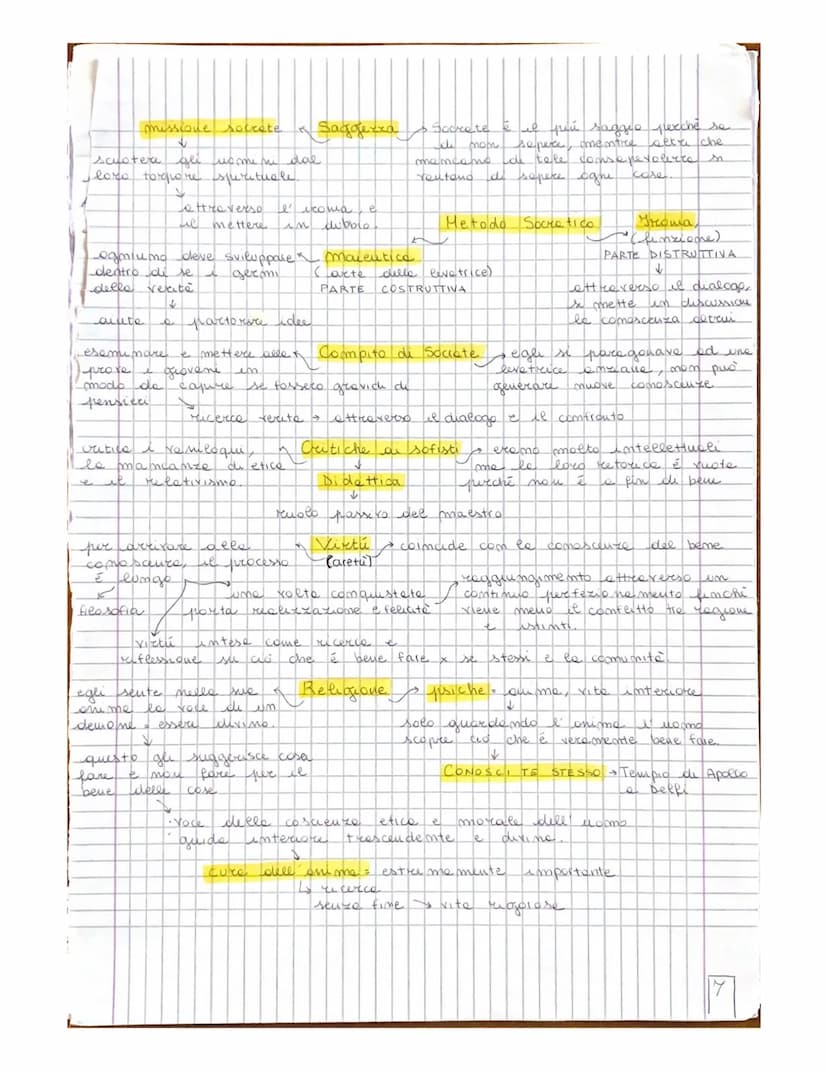 missione socrate ← Saggezza → Socrate è il più saggio perché sa
di non sapere, mentre altri che
mancano di tale consapevolezza si
vantano di sapere ogni cosa.
↓
scuotere gli uomini dal
loro torpore spirituale.
↓
attraverso l'ironia, e
il mettere in dubbio.
Metodo Socratico
Ironia,
(finzione)
PARTE DISTRUTTIVA
↓
attraverso il dialogo,
si mette in discussione
la conoscenza altrui
Maieutica
(arte della levatrice)
PARTE COSTRUTTIVA
ogniuno deve sviluppare
dentro di se i germi
della verità
↓
aiuta a partorire idee
Compito di Socrate → egli si paragonava ad una
levatrice anziana, non può
generare nuove conoscenze
esaminare e mettere alla
prova i giovani in
modo da capire se fossero gravidi di
pensieri
ricerca verità → attraverso il dialogo e il confronto
Critiche ai sofisti → erano molto intellettuali
ma la loro retorica è vuota
perché non è a fin di bene
critica i vaniloqui,
la mancanza di etica
e il relativismo.
↓
Didattica
↓
ruolo passivo del maestro
Virtù → coincide con la conoscenza del bene
(aretù)
per arrivare alla
conoscenza, il processo
è lungo
filosofia
una volta conquistata
porta realizzazione e felicità
raggiungimento attraverso un
continuo perfezionamento finchè
viene meno il conflitto tra ragione
e istinti.
virtù intesa come ricerca e
riflessione su ciò che è bene fare x se stessi e la comunità.
Religione → psiche = anima, vita interiore
↓
solo guardando l'anima l'uomo
scopre ciò che è veramente bene fare.
↓
CONOSCI TE STESSO → Tempio di Apollo
a Delfi
egli sente nella sua
anima la voce di un
demone = essere divino.
↓
questo gli suggerisce cosa
fare e non fare per il
bene delle cose
voce della coscienza etica e morale dell'uomo
guida interiore trascendente e divina.
↓
cura dell'anima = estremamente importante
↳ ricerca
senza fine → vita rigorosa
7